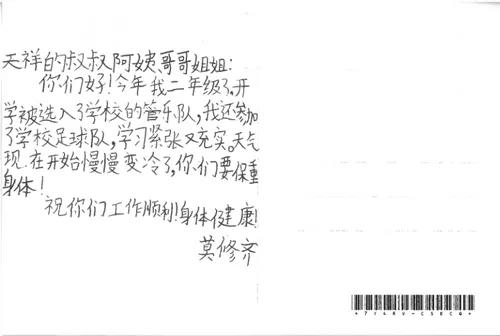 天祥的叔叔阿姨、哥哥姐姐:
你们好!今年我二年级了,开
学被选入了学校的管乐队,我还参加
了学校足球队,学习紧张又充实。天气
现在开始慢慢变冷了,你们要保重
身体!
祝你们工作顺利!身体健康!
莫修齐